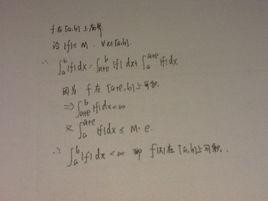 f在[a,b]上有界
设 |f|≤ M. ∀x∈[a,b].
∴ ∫_a^b |f| dx = ∫_{a+e}^b |f| dx + ∫_a^{a+e} |f| dx
因为 f在 [a+e,b]上可积.
⇒ ∫_{a+e}^b |f| dx <∞
又 ∫_a^{a+e} |f| dx ≤ M·e.
∴ ∫_a^b |f| dx <∞ 即 f(x)在 [a,b]上可积.